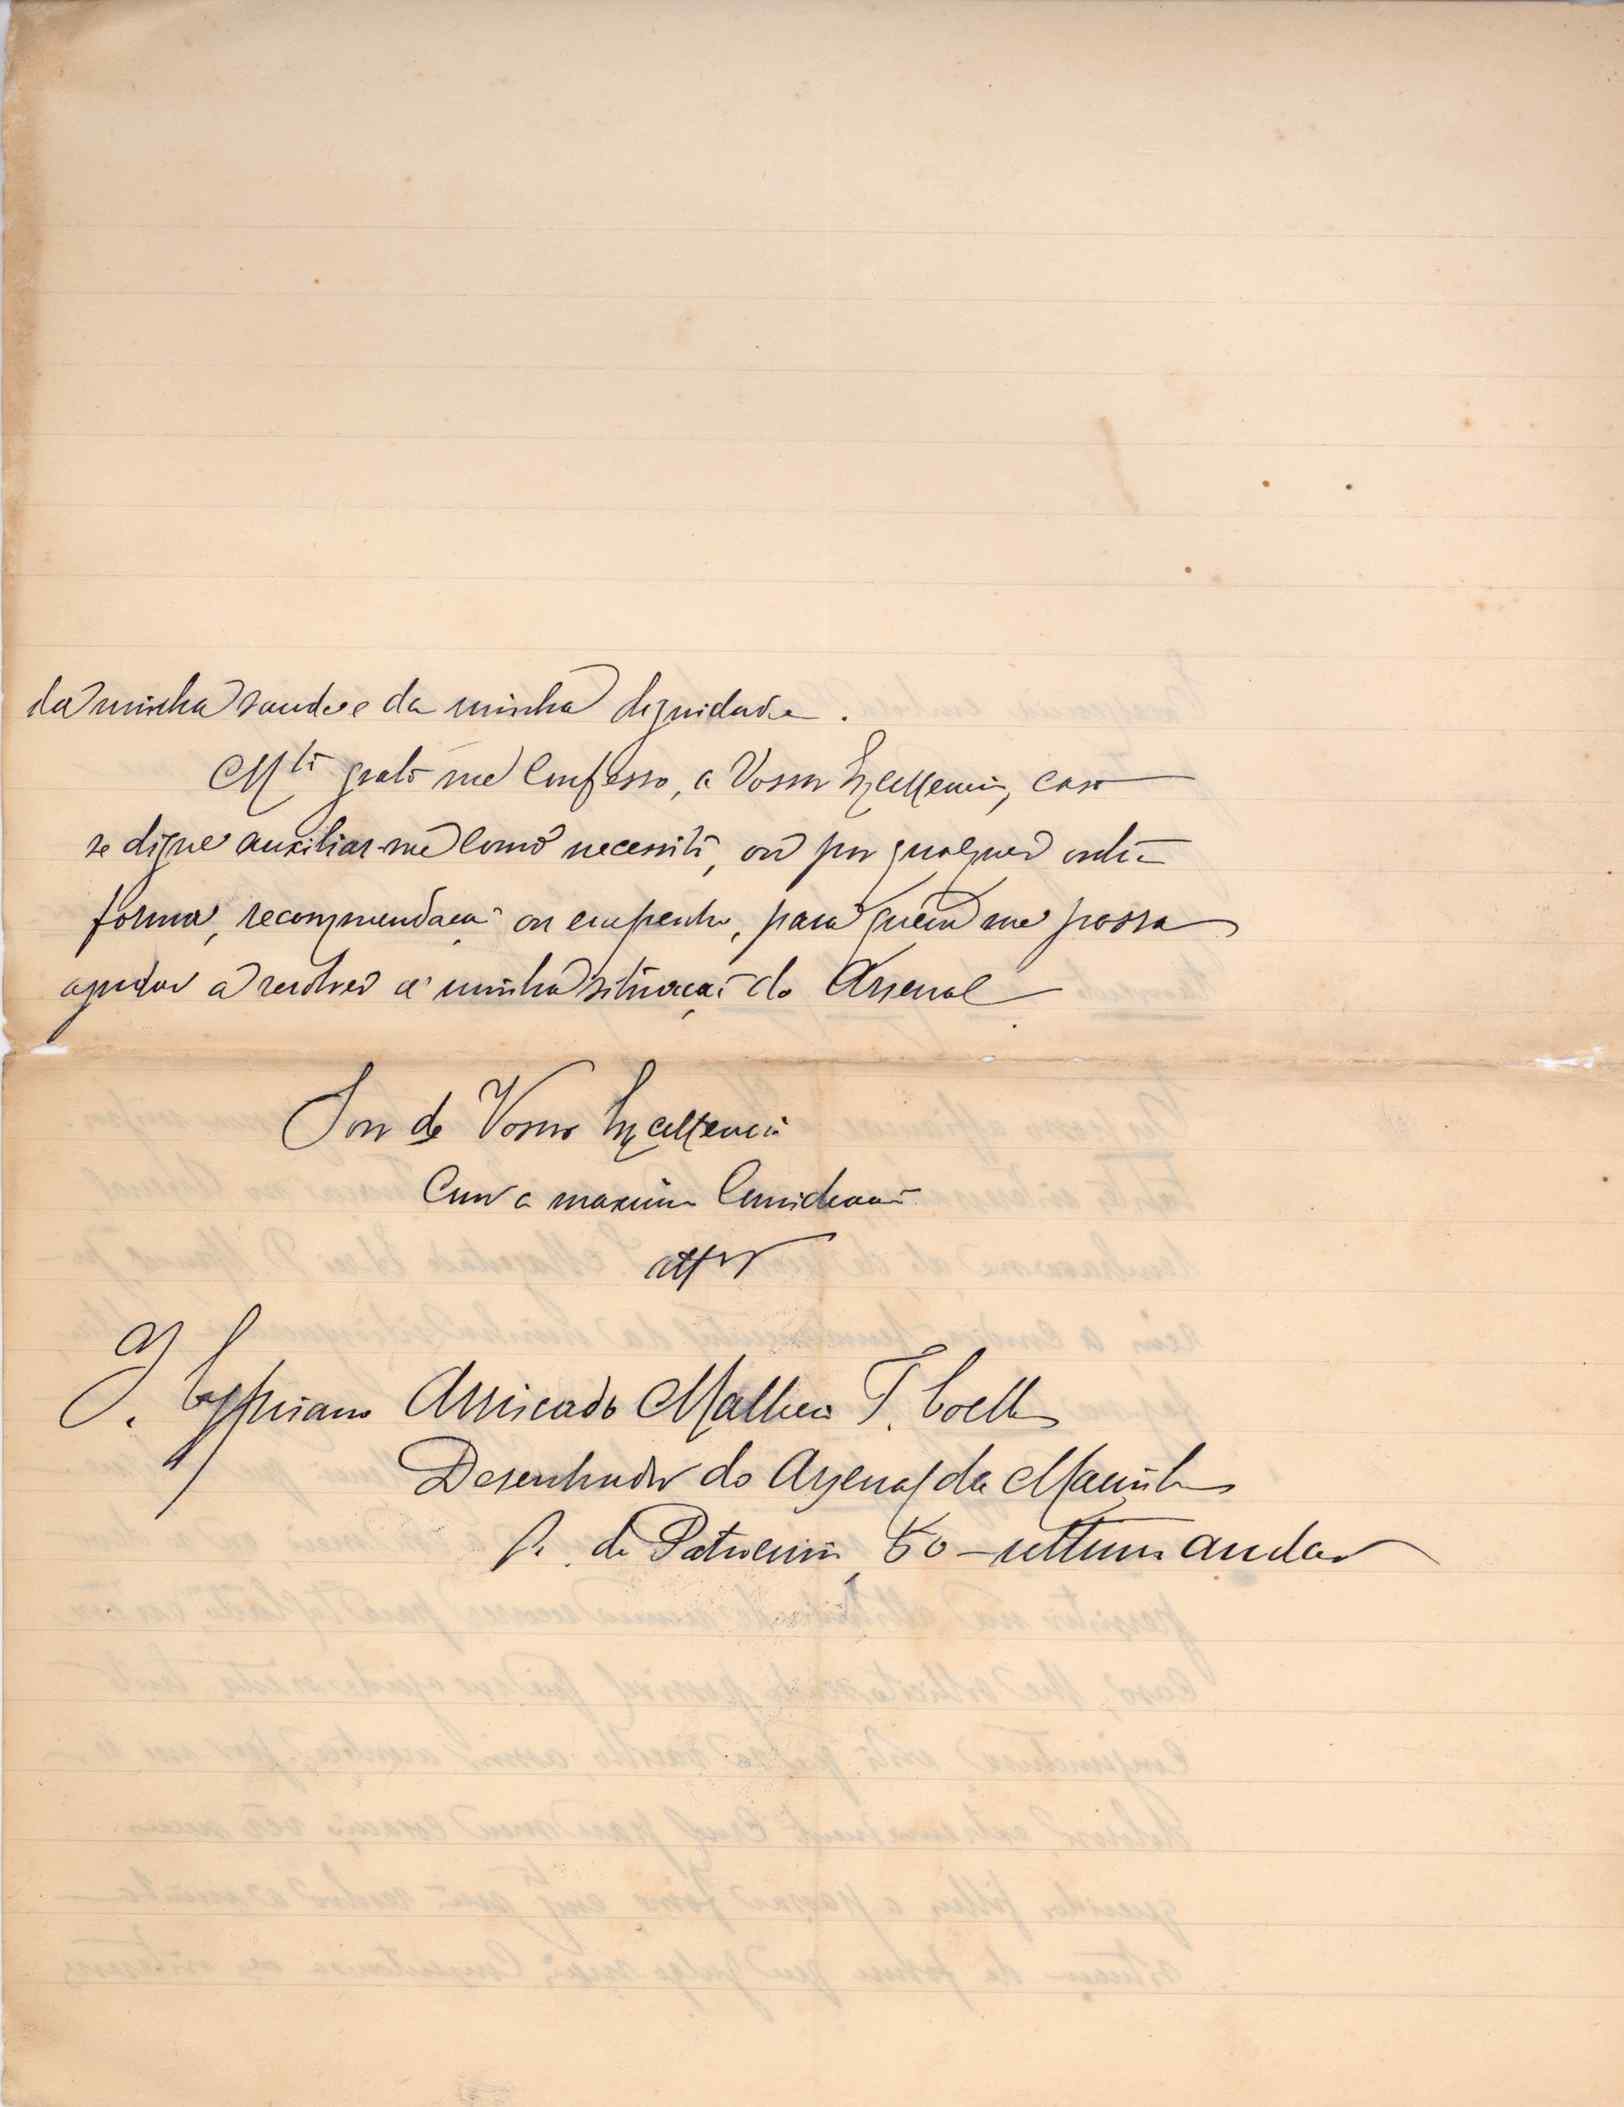 da minha saude e da minha dignidade.
Mto grato me confesso, a Vossa Excellencia, caso
se digne auxiliar-me como necessito, ou por qualquer outra
forma, recommendação ou empenho, para quem me possa
ajudar a resolver a minha situação do Arsenal
Sou de Vossa Excellencia
Com a maxima Consideração
attor
J. Cypriano Arriscado Matheu T. Coelho
Desenhador do Arsenal da Marinha
R. do Patrocinio, 50 - ultimo andar